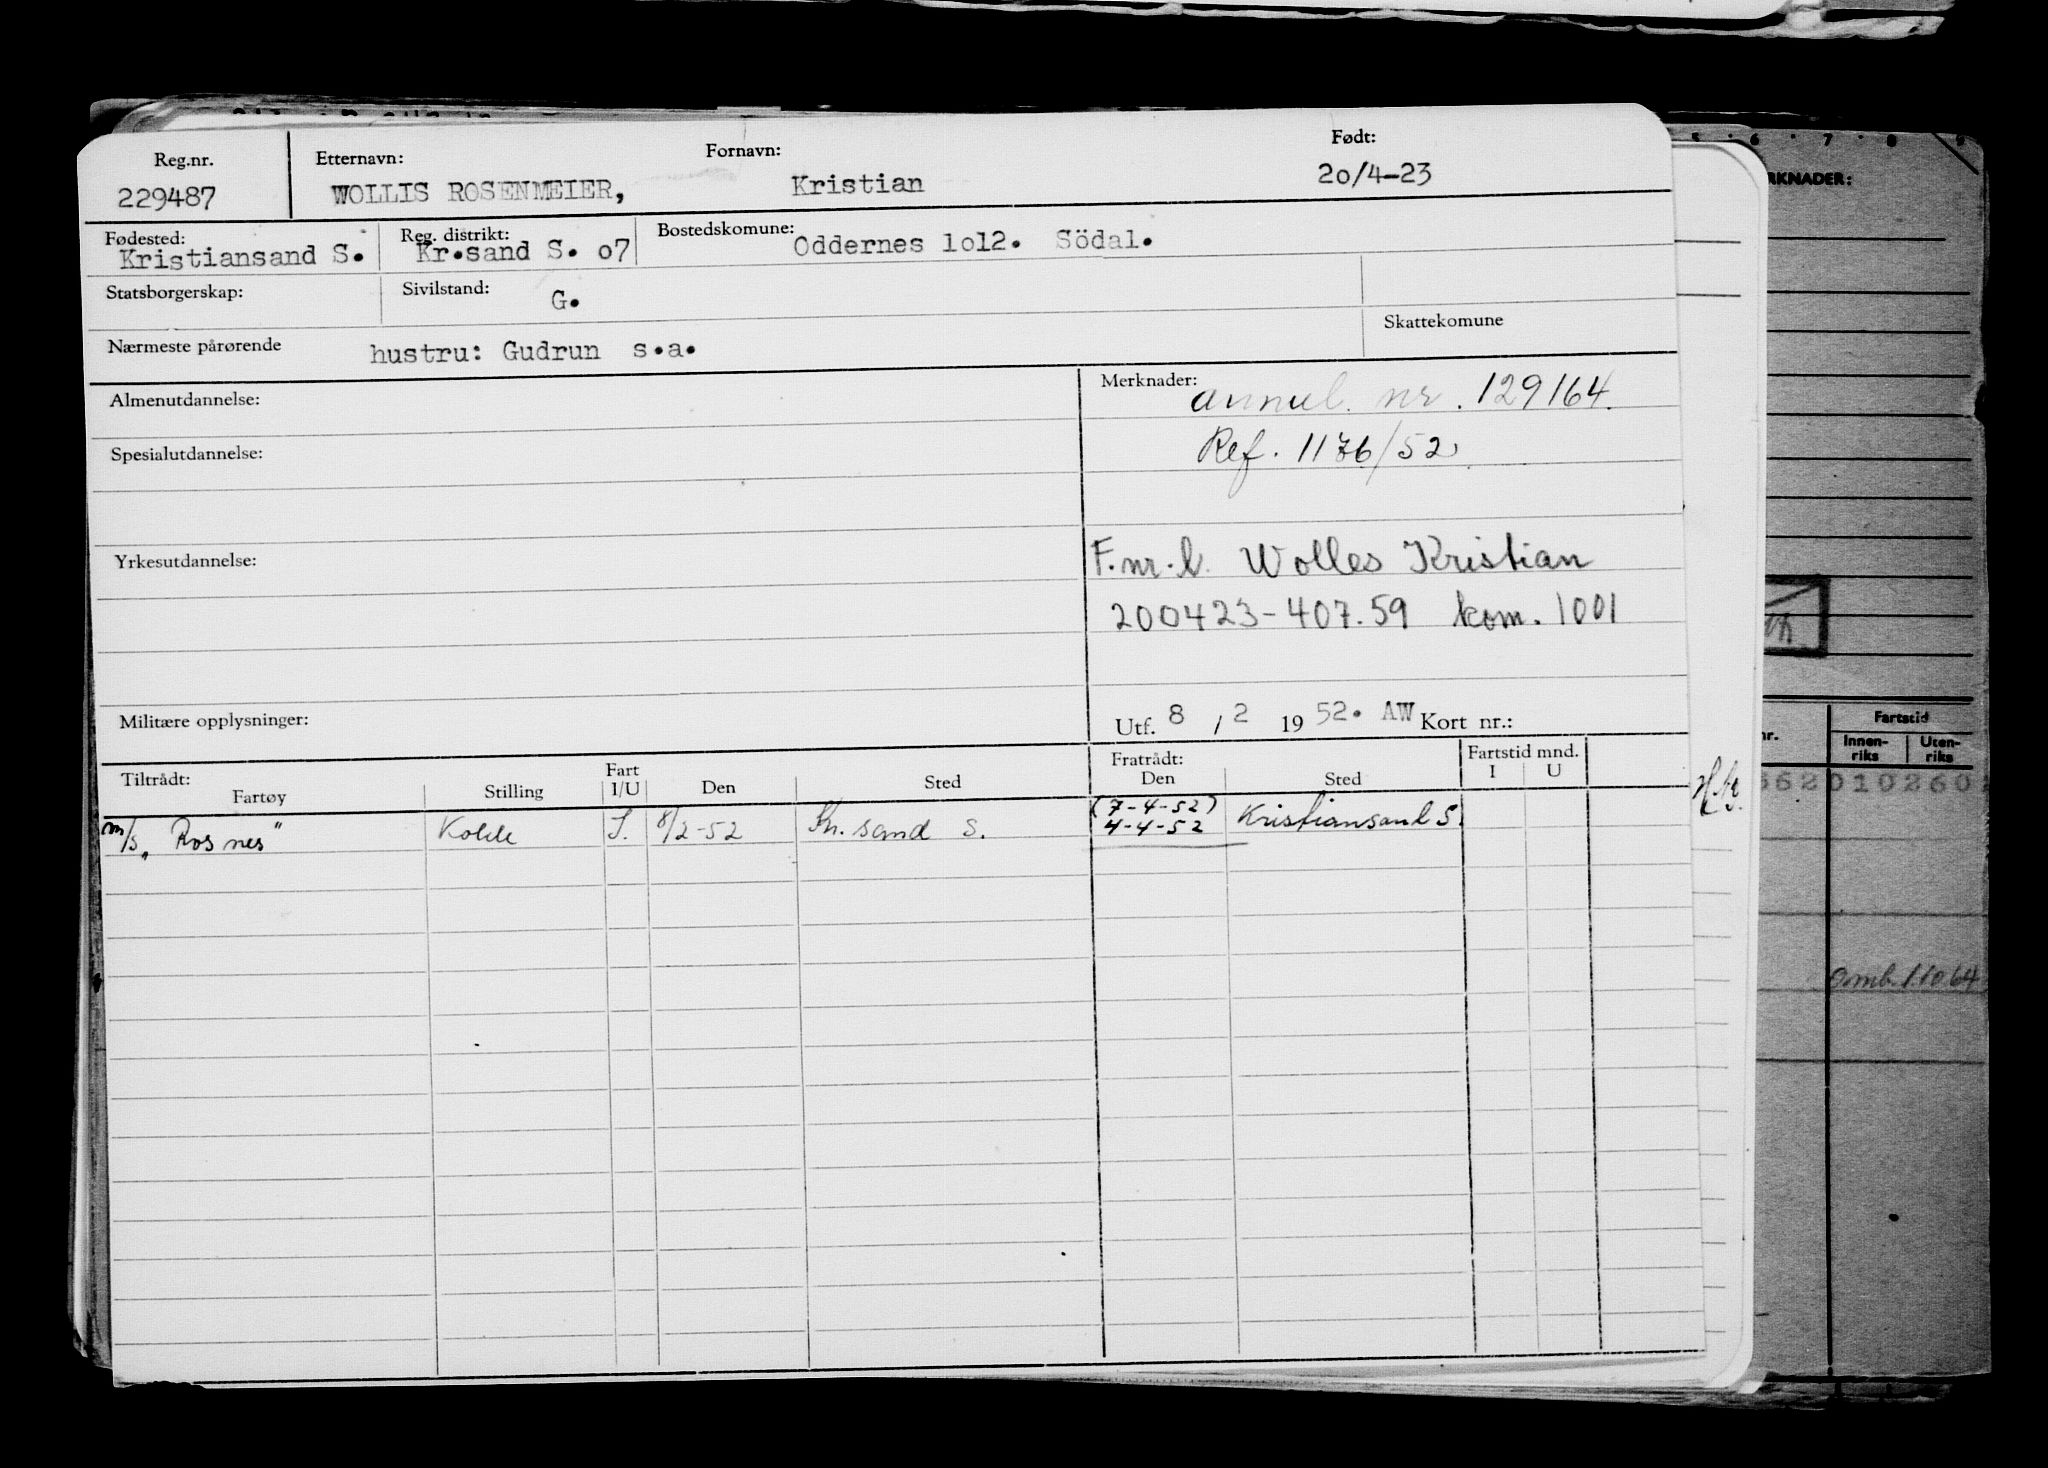 Reg.nr. Etternavn: Fornavn: Født:
229487 WOLLIS ROSENMEIER, Kristian 20/4-23
Fødested: Reg. distrikt: Bostedskomune:
Kristiansand S. Kr.sand S. o7 Oddernes 1o12. Södal.
Statsborgerskap: Sivilstand: G.
Skattekomune
Nærmeste pårørende hustru: Gudrun s.a.
Almenutdannelse: Merknader: annul. nr. 129164.
Spesialutdannelse: Ref. 1176/52
Yrkesutdannelse: F.nr.b. Wolles Kristian
200423-407.59 kom. 1001
Militære opplysninger: Utf. 8 / 2 19 52. AW Kort nr.:
Tiltrådt: Fratrådt: Fartstid mnd.
Fartøy Stilling Fart I/U Den Sted Den Sted I U
(7-4-52)
m/s „Rosnes" S. 8/2-52 Kr.sand S. 4-4-52 Kristiansand S.
RKNADER:
nr. Fartstid
Innen-riks Uten-riks
662010260
omb. 1.10.64